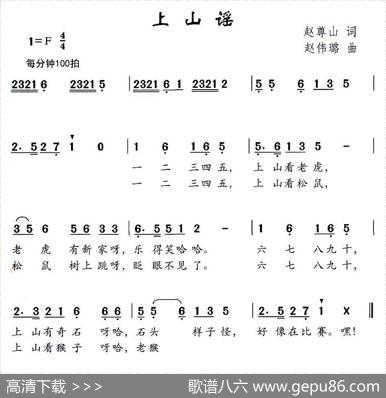 上山谣
1=F 4/4
赵尊山 词
赵伟璐 曲
每分钟100拍
2321 6· 2321 5· 2321 6 1 2321 5· 5·6 135
2·5 27 1 0 1 6 16 5 5·6 13 5 -
一 二 三四 五， 上山看老虎，
一 二 三四 五， 上山看松鼠，
35 6 56 33 6·5 512 - 1 6 16 5
老虎 有新家呀，乐得笑哈哈。 六 七 八九十，
松鼠 树上跳呀，眨眼不见了。 六 七 八九十，
2·3 21 61 2 55 5 6 13 5 2·5 27 1 X
上山有奇石 呀哈，石头 样子怪， 好像在比赛。嘿！
上山看猴子 呀哈，老猴
高清下载 >>>
歌谱八六 www.gepu86.com